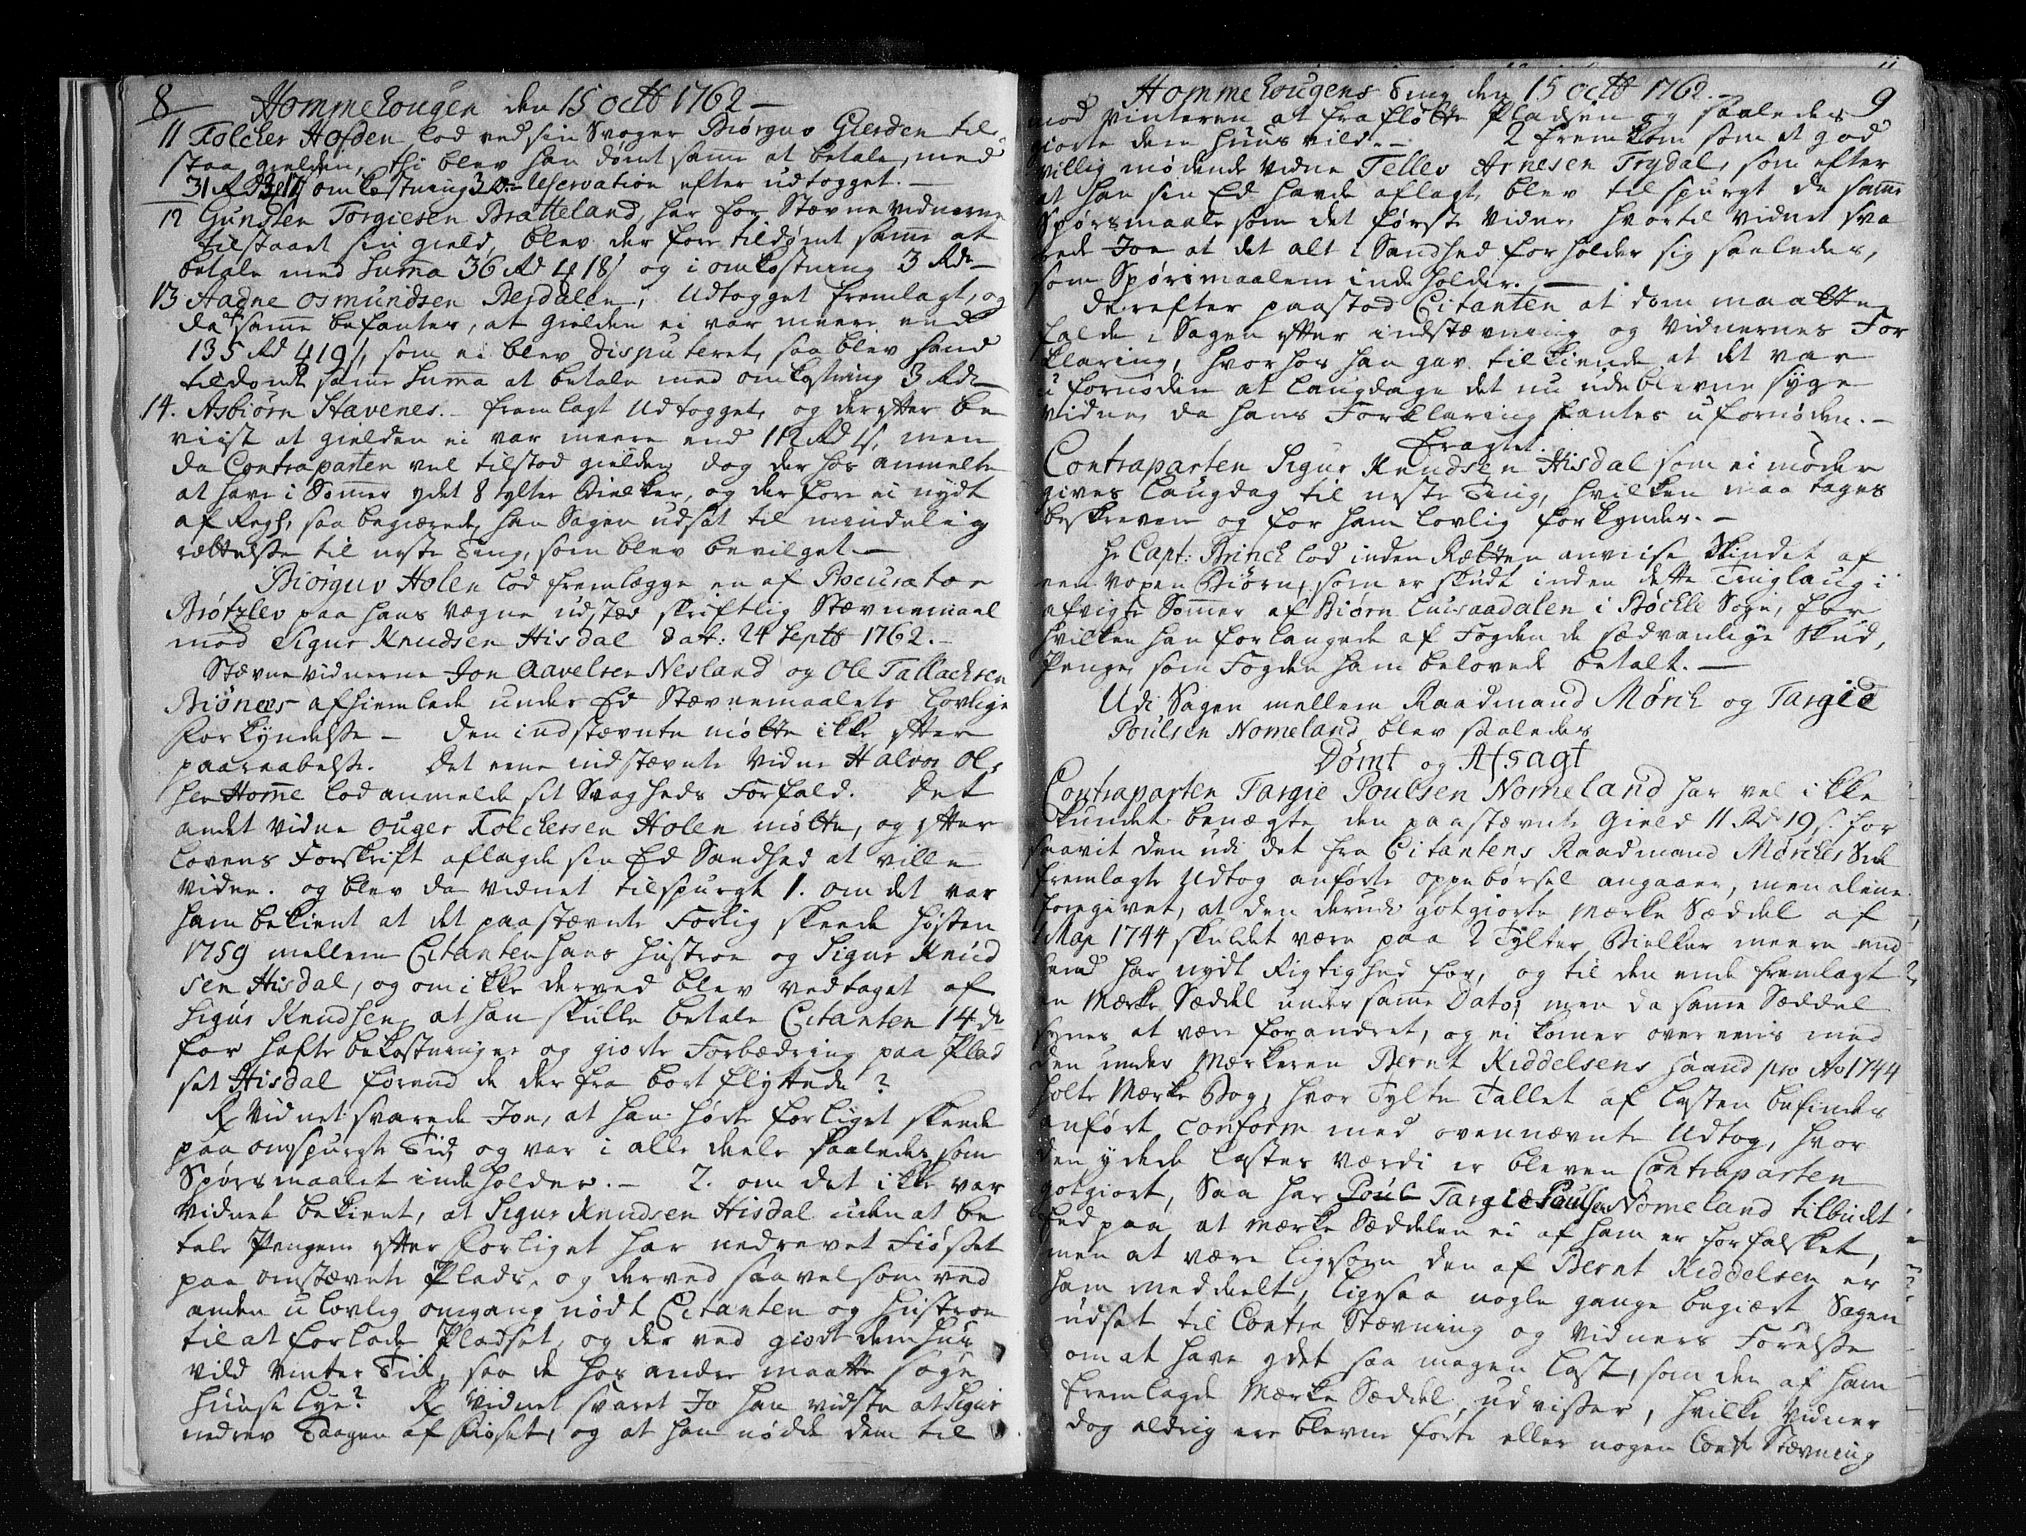 8 Hommelougen den 15 octb 1762 –
11 Folcker Hofden lod ved sin Svoger Biørguv Gierden til
staa gielden, thi blev han dømt samme at betale, med
31 Rd omkostning 3 Reservation efter udtogget. –
12 Gundsten Torgiesen Bratteland, har for Stævnevidnerne
tilstaaet sin gield, blev der fore tildømt samme at
betale med Summa 36 Rd 4 18 s og i omkostning 3 Rdr –
13 Aadne Osmundsen Besdalen, Udtogget fremlagt, og
da samme befantes, at gielden ei var meere end
135 Rd 4 19 s, som ei blev disputeret, saa blev hand
tildømt samme Summa at betale med omkostning 3 Rdr –
14. Asbiørn Stavenes. – fremlagt Udtogget, og derefter be
viist at gielden ei var meere end 112 Rd 4 s, men
da Contraparten vel tilstod gielden dog der hos anmelte
at have i Sommer ydet 8 tylter Bielker, og derfore ei nydt
af Regsk, saa begiærede han Sagen udsat til mindelig
rettelse til neste Ting, som blev bevilget. –
Biørguv Holen lod fremlægge en af Procurator
Brøtzlev paa hans vegne udstæd skriftlig Stævnemaal
mod Sigur Knudsen Hisdal dat: 24 Septb 1762. –
Stævnevidnerne Jon Aavelsen Nesland og Ole Tallachsen
Biønnes afhiemlede under Ed Stævnemaalets lovlige
Forkyndelse – Den indstævnte mødte ikke efter
paaraabelse. Det eene indstævnte Vidne Halvor Ol,
sen Homme lod anmelde sit Svagheds Forfald. Det
andet Vidne Ouger Folckersen Holen mødte, og efter
Lovens Forskrift aflagde sin Ed Sandhed at ville
vidne. og blev da vidnet tilspurgt 1. om det var
ham bekient at det paastævnte Forlig skeede høsten
1759 mellem Citanten hans hustroe og Sigur Knud
sen Hisdal, og om ikke derved blev vedtaget af
Sigur Knudsen, at han skulle betale Citanten 14 dr
for hafte bekostninger og giorte Forbedring paa Plad
set Hisdal førend de der fra bort flyttede?
R Vidnet svarede Joe, at han hørte forliget skeede
paa omspurgte Tid, og var i alle deele saaledes som
Spørsmaalet indeholder. – 2. om det ikke var
Vidnet bekient, at Sigur Knudsen Hisdal uden at be
tale Pengene efter Forliget har nedrevet Fiøset
paa omstævnte Plads, og derved saavelsom ved
anden ulovlig omgang nødt Citanten og hustroe
til at forlade Pladset, og der ved giort dem huus
vild Vinter Tid, saa de hos andre maatte søge
huuse lye? R Vidnet svaret Jo han vidste at Sigur
nedrev Taagen af Fiøset, og at han nødde dem til
Hommelougens Ting den 15 octb 1762. – 9
mod Vinteren at fra fløtte Pladsen og saaledes
giorte dem huus vild. – 2 fremkom som et god
villig mødende vidne Tellev Arnesen Trydal, som efter
at han sin Ed havde aflagt, blev tilspurgt de samme
Spørsmaale som det første Vidne, hvortil Vidnet sva
rede Joe at det alt i Sandhed forholder sig saaledes,
som Spørsmaalene indeholder. –
Derefter paastod Citanten at dom maatte
falde i Sagen efter indstævning og Vidnernes For
klaring, hvorhos han gav tilkiende at det var
ufornøden at Laugdage det nu udeblevne syge
Vidne, da hans Forklaring fantes ufornøden. –
Eragtet.
Contraparten Sigur Knudsen Hisdal som ei møder
gives Laugdag til neste Ting, hvilken maa tages
beskreven og for ham lovlig forkyndes. –
Hr Capt: Brinck lod inden Retten anviise Skindet af
een voxen Biørn, som er skudt inden dette Tinglaug i
afvigte Sommer af Biørn Luusaadalen i Bøckle Sogn, for
hvilken han forlangede af Fogden de sædvanlige Skud,
Penge som Fogden ham belovede betalt. –
Udi Sagen mellem Raadmand Mørch og Targie
Poulsen Nomeland, blev saaledes
Dømt og Afsagt
Contraparten Targie Poulsen Nomeland har vel ikke
kundet benægte den paastævnte Gield 11 Rdr 19 s. for
saavit den udi det fra Citantens Raadmand Mørches Side
fremlagte Udtog anførte oppebørsel angaaer, men alene
foregivet, at den derudi gotgiorte Mærke Sæddel af
1 May 1744 skuldet være paa 2 Tylter Bielker meere end
hand har nydt Rigtighed for, og til den ende fremlagt
en Mærke Sæddel under samme Dato, men da samme Sæddel
synes at være forandret, og ei komer overeens med
den under Mærkeren Bernt Kiddelsens haand pro Ao 1744
holte Mærke Bog, hvor Tylte Tallet af Lasten befindes
anført conform med ovennævnte Udtog, hvor
den ydede Lastes værdi er bleven Contraparten
gotgiort, Saa har Poul Targie Poulsen Nomeland tilbudt
Eed paa at Mærke Sæddelen ei af ham er forfalsket,
men at være ligesom den af Bernt Kiddelsen er
ham meddeelt, ligesaa nogle gange begiært Sagen
udsat til Contra Stævning og Vidners Førelse
om at have ydet saa megen Last, som den af ham
fremlagde Mærke Sæddel udviiser, hvilke Vidner
dog aldrig ere blevne førte eller nogen Contr Stævning